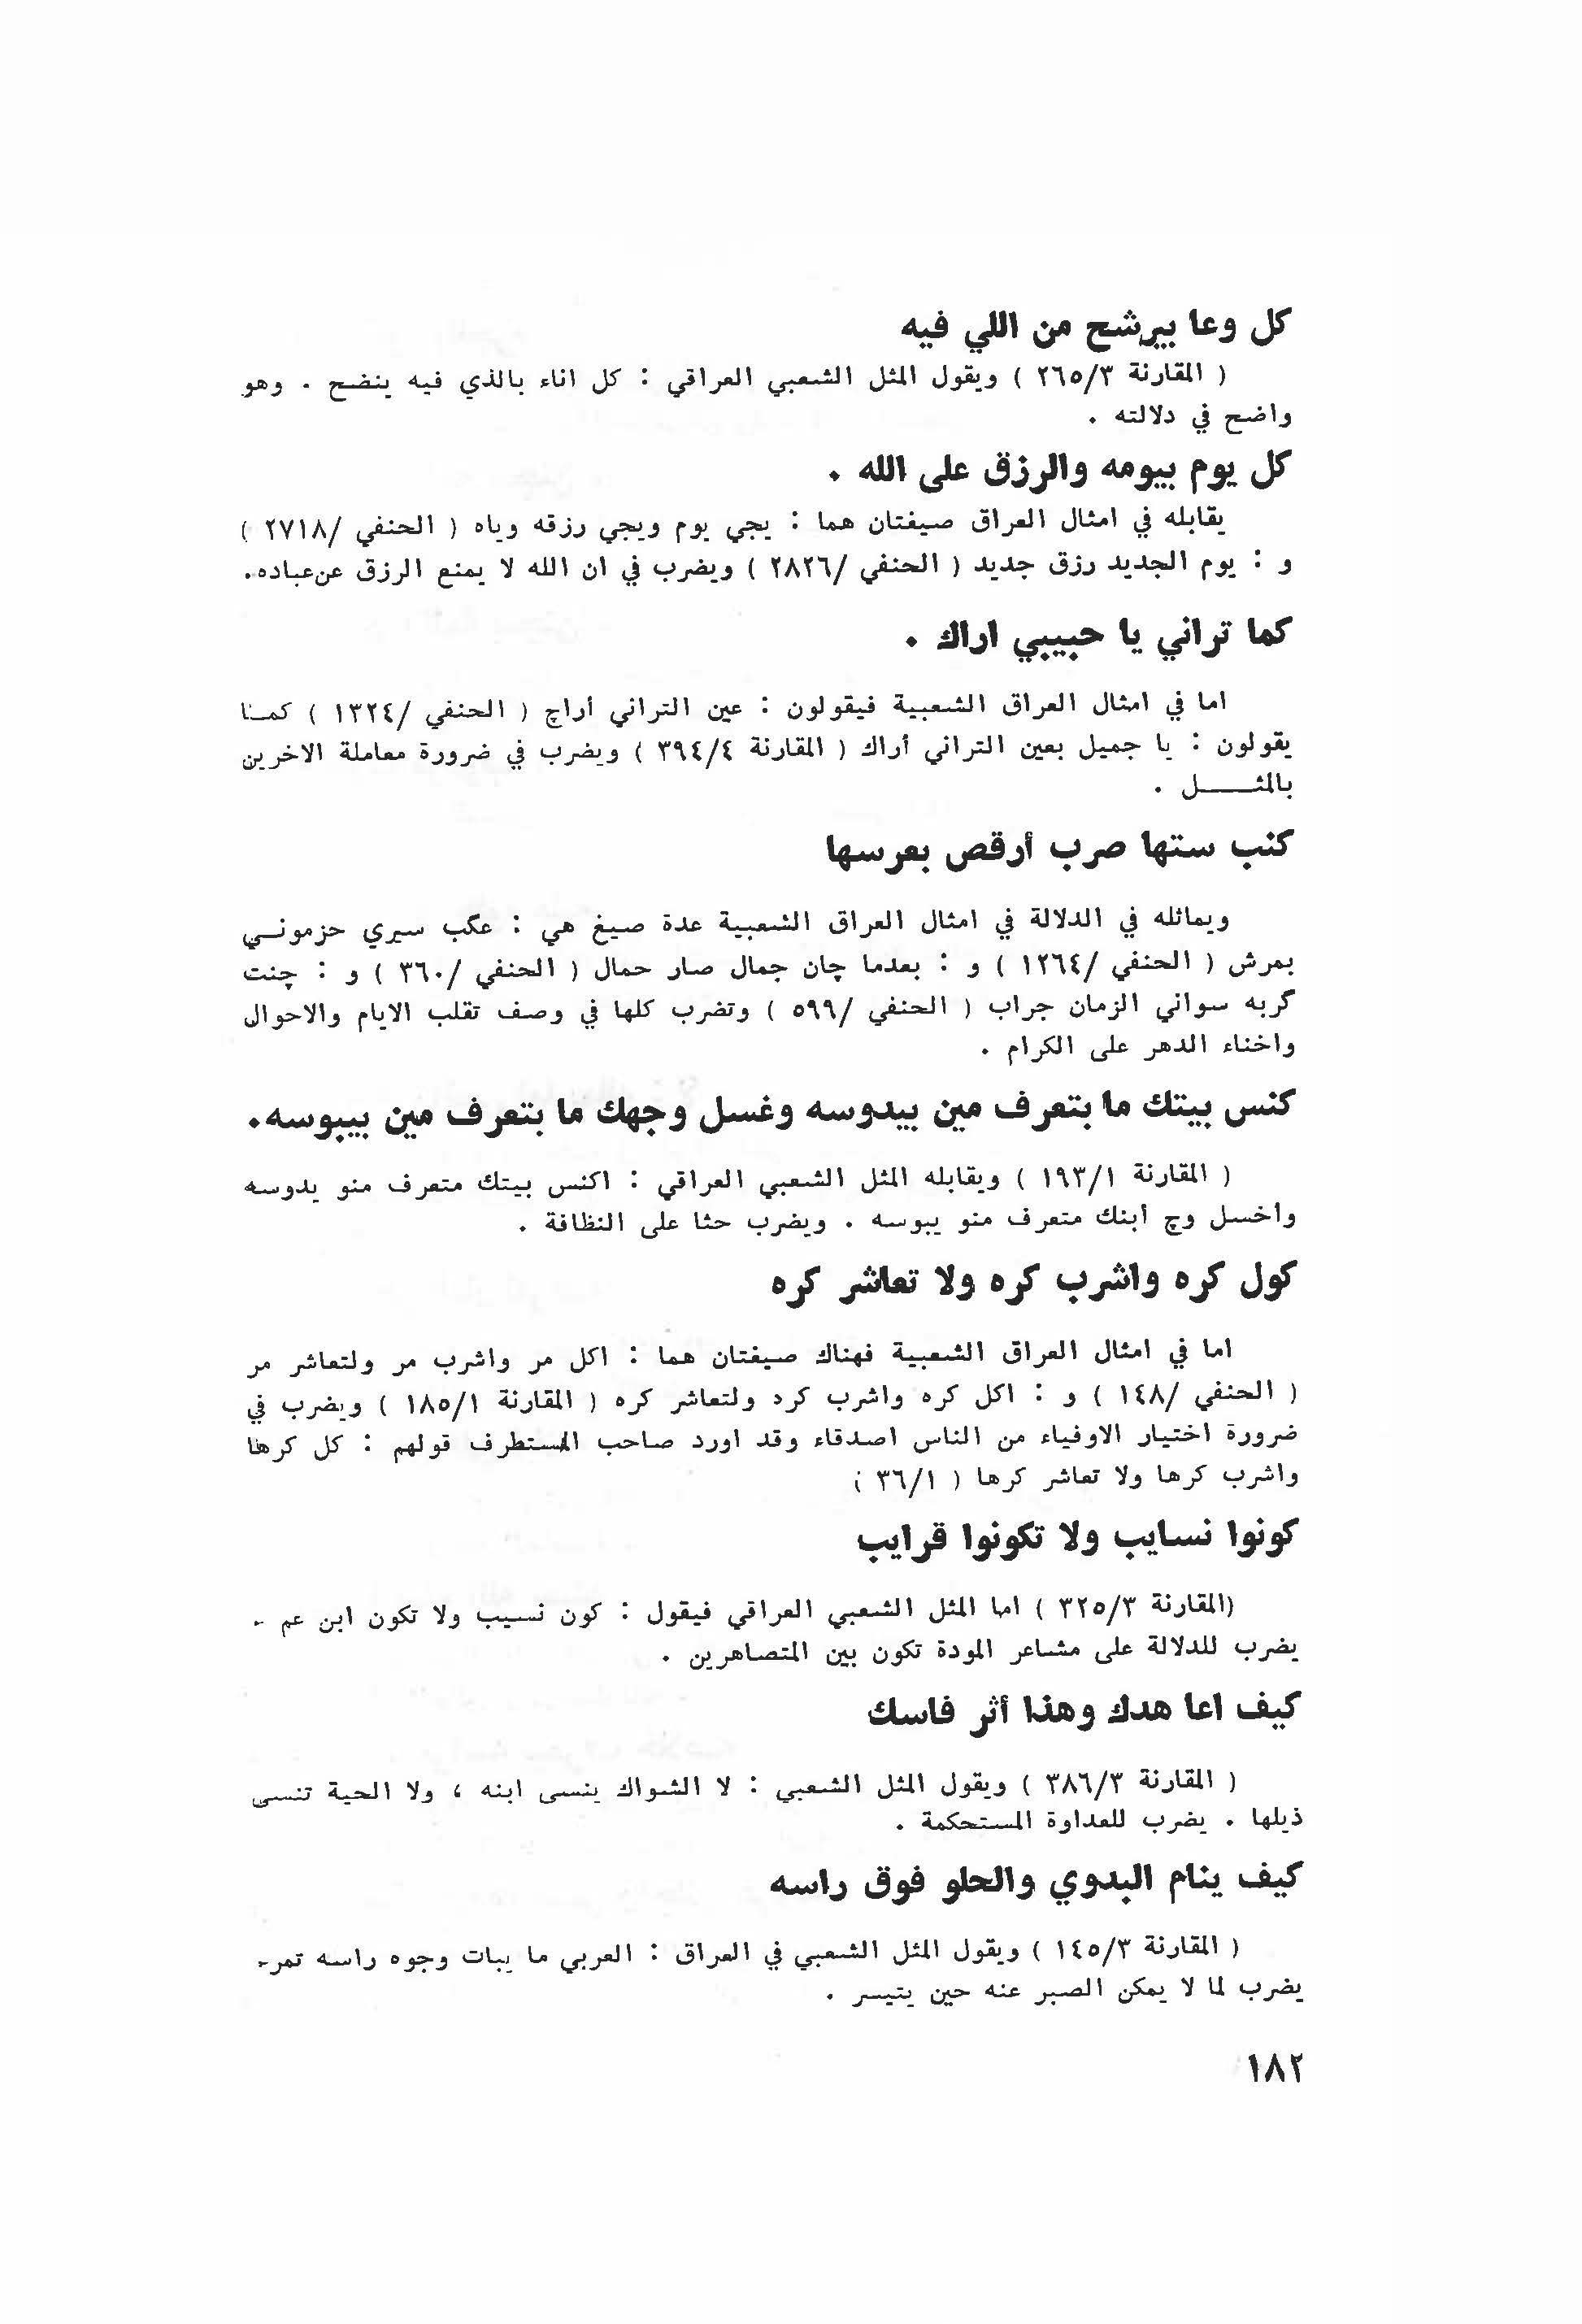 كل وعا بيرشح من اللي فيه
( المقارنة ٢٦٥/٣ ) ويقول المثل الشعبي العراقي : كل اناء بالذي فيه ينضح . وهو
واضح في دلالته .
كل يوم بيومه والرزق على الله .
يقابله في امثال العراق صيغتان هما : يجي يوم ويجي رزقه وياه ( الحنفي /٢٧١٨ )
و : يوم الجديد رزق جديد ( الحنفي /٢٨٢٦ ) ويضرب في ان الله لا يمنع الرزق عن عباده.
كما تراني يا حبيبي اراك .
اما في امثال العراق الشعبية فيقولون : عين التراني أراچ ( الحنفي /١٣٢٤ ) كمـا
يقولون : يا جميل بعين التراني أراك ( المقارنة ٣٩٤/٤ ) ويضرب في ضرورة معاملة الاخرين
بالمثـــــل .
كنب ستها صرب أرقص بعرسها
ويماثله في الدلالة في امثال العراق الشعبية عدة صيغ هي : عگب سيري حزمونـي
بمرش ( الحنفي /١٢٦٤ ) و : بعدما چان جمال صار حمال ( الحنفي /٣٦٠ ) و : چنت
گربه سواني الزمان جراب ( الحنفي /٥٩٩ ) وتضرب كلها في وصف تقلب الايام والاحوال
واخناء الدهر على الكرام .
كنس بيتك ما بتعرف مين بيدوسه وغسل وجهك ما بتعرف مين بيبوسه.
( المقارنة ١٩٣/١ ) ويقابله المثل الشعبي العراقي : اكنس بيتك متعرف منو يدوسه
واخسل وچ أبنك متعرف منو يبوسه . ويضرب حثا على النظافة .
كول كره واشرب كره ولا تعاشر كره
اما في امثال العراق الشعبية فهناك صيغتان هما : اكل مر واشرب مر ولتعاشر مر
( الحنفي /١٤٨ ) و : اكل كره واشرب كره ولتعاشر كره ( المقارنة ١٨٥/١ ) ويضرب في
ضرورة اختيار الاوفياء من الناس اصدقاء وقد اورد صاحب المستطرف قولهم : كل كرها
واشرب كرها ولا تعاشر كرها ( ٣٦/١ )
كونوا نسايب ولا تكونوا قرايب
(المقارنة ٣٢٥/٣ ) اما المثل الشعبي العراقي فيقول : كون نسيب ولا تكون ابن عم -
يضرب للدلالة على مشاعر المودة تكون بين المتصاهرين .
كيف اعا هدك وهذا أثر فاسك
( المقارنة ٣٨٦/٣ ) ويقول المثل الشعبي : لا الشواك ينسى ابنه ، ولا الحية تنسى
ذيلها . يضرب للعداوة المستحكمة .
كيف ينام البدوي والحلو فوق راسه
( المقارنة ١٤٥/٣ ) ويقول المثل الشعبي في العراق : العربي ما يبات وجوه راسه تمر-
يضرب لما لا يمكن الصبر عنه حين يتيسر .
١٨٢